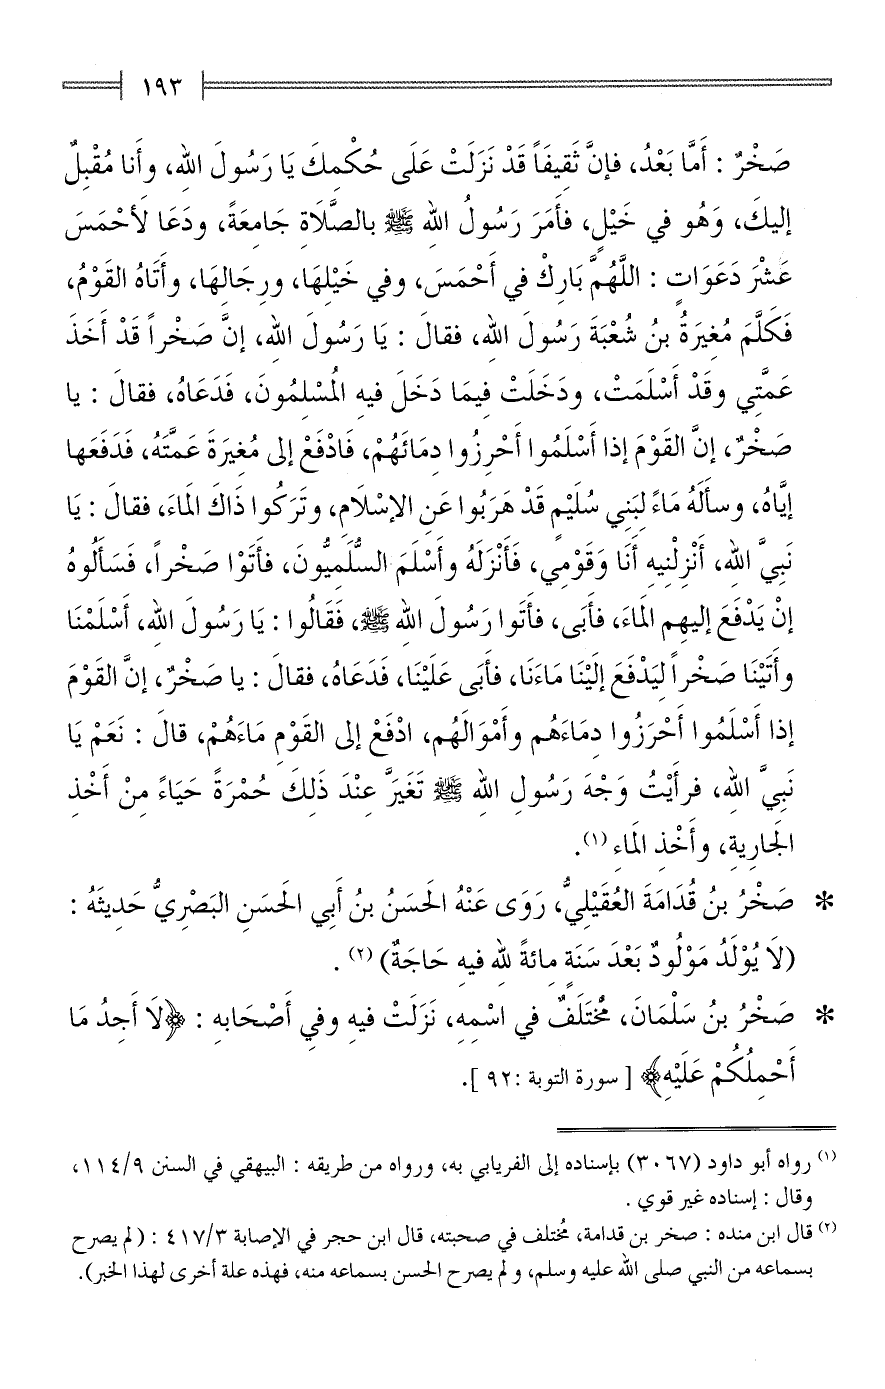 ١٩٣
صَخْرٌ : أَمَّا بَعْدُ، فإنَّ ثَقِيفَاً قَدْ نَزَلَتْ عَلَى حُكْمِكَ يَا رَسُولَ الله، وأَنا مُقْبِلٌ
إليكَ، وَهُو في خَيْلٍ، فأَمَرَ رَسُولُ الله ﷺ بالصَّلَاةِ جَامعَةً، ودَعَا لَأَحْمَسَ
عَشْرَ دَعَوَاتٍ : اللَّهُمَّ بَارِكْ في أَحْمَسَ، وفي خَيْلِهَا، ورِجَالِهَا، وأَتَاهُ القَوْمُ،
فَكَلَّمَ مُغِيرَةُ بنُ شُعْبَةَ رَسُولَ الله، فقالَ : يَا رَسُولَ الله، إنَّ صَخْراً قَدْ أَخَذَ
عَمَّتِي وقَدْ أَسْلَمَتْ، ودَخَلَتْ فِيمَا دَخَلَ فيه المُسْلِمُونَ، فَدَعَاهُ، فقالَ : يا
صَخْرُ، إنَّ القَوْمَ إذا أَسْلَمُوا أَحْرِزُوا دِمَائَهُمْ، فَادْفَعْ إلى مُغِيرَةَ عَمَّتَهُ، فَدَفَعَها
إيَّاهُ، وسأَلَهُ مَاءً لبَنِي سُلَيْمٍ قَدْ هَرَبُوا عَنِ الإسْلَامِ، وتَرَكُوا ذَاكَ المَاءَ، فقالَ : يَا
نَبِيَّ الله، أَنْزِلْنِيهِ أَنَا وَقَوْمِي، فَأَنْزَلَهُ وأَسْلَمَ السُّلَمِيُّونَ، فأَتَوْا صَخْراً، فَسَأَلُوهُ
إنْ يَدْفَعَ إليهِم المَاءَ، فأَبَى، فأَتَوا رَسُولَ الله ﷺ، فَقَالُوا : يَا رَسُولَ الله، أَسْلَمْنَا
وأَتَيْنَا صَخْراً لِيَدْفَعَ إلَيْنَا مَاءَنَا، فأَبَى عَلَيْنَا، فَدَعَاهُ، فقالَ : يا صَخْرُ، إنَّ القَوْمَ
إذا أَسْلَمُوا أَحْرَزُوا دِماءَهُم وأَمْوَالَهُم، ادْفَعْ إلى القَوْمِ مَاءَهُمْ، قالَ : نَعَمْ يَا
نَبِيَّ الله، فرأَيْتُ وَجْهَ رَسُولِ الله ﷺ تَغَيَرَّ عِنْدَ ذَلِكَ حُمْرَةً حَيَاءً مِنْ أَخْذِ
الجَارِيةِ، وأَخْذِ المَاءِ (١).
* صَخْرُ بنُ قُدَامَةَ العُقَيْليُّ، رَوَى عَنْهُ الحَسَنُ بنُ أَبِي الحَسَنِ البَصْرِيُّ حَدِيثَهُ :
(لَا يُوْلَدُ مَوْلُودٌ بَعْدَ سَنَةِ مِائةً لله فيه حَاجَةٌ) (٢) .
* صَخْرُ بنُ سَلْمَانَ، مُخْتَلَفٌ في اسْمِهِ، نَزَلَتْ فيهِ وفي أَصْحَابهِ : ﴿لَا أَجِدُ مَا
أَحْمِلُكُمْ عَلَيْهِ﴾ [ سورة التوبة : ٩٢ ].
(١) رواه أبو داود (٣٠٦٧) بإسناده إلى الفريابي به، ورواه من طريقه : البيهقي في السنن ١١٤/٩،
وقال : إسناده غير قوي .
(٢) قال ابن منده : صخر بن قدامة، مُختلف في صحبته، قال ابن حجر في الإصابة ٤١٧/٣ : (لم يصرح
بسماعه من النبي صلى الله عليه وسلم، ولم يصرح الحسن بسماعه منه، فهذه علة أخرى لهذا الخبر).